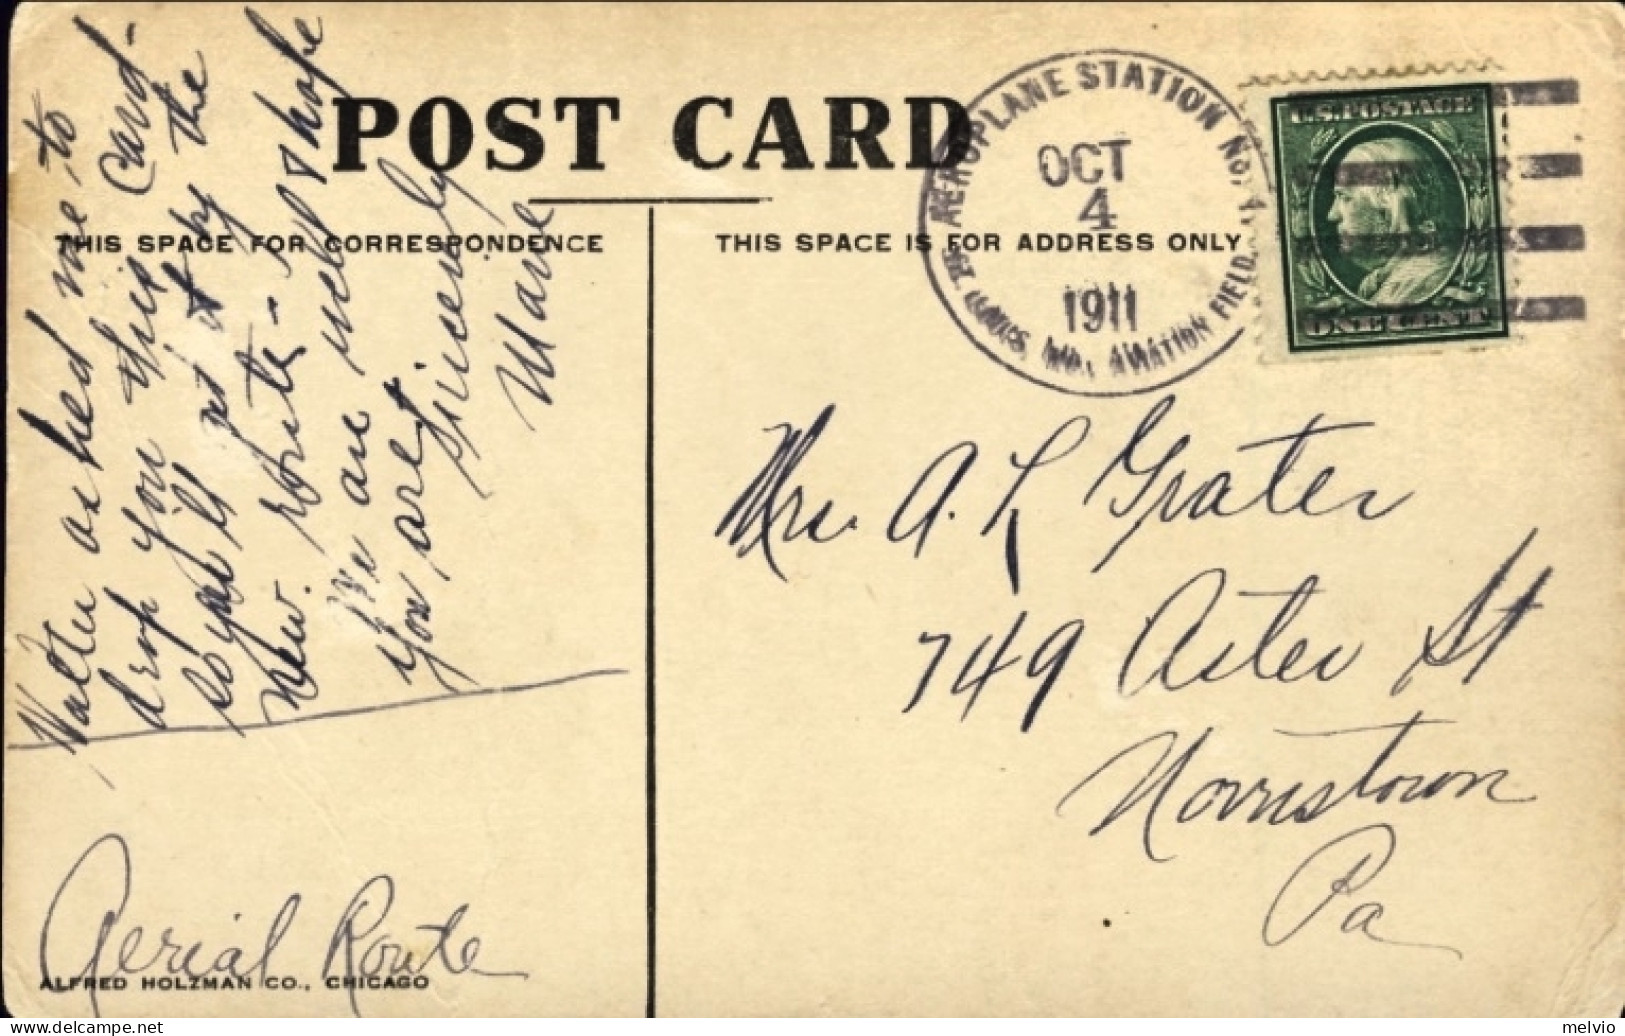 POST CARD
THIS SPACE FOR CORRESPONDENCE
THIS SPACE IS FOR ADDRESS ONLY
AEROPLANE STATION No. 1
OCT
4
1911
ST. LOUIS, MO., AVIATION FIELD.
U.S. POSTAGE
ONE CENT
Walter asked me to
drop you this card -
so you'll get it by the
new route - all & hope
We are well
you are
Sincerely
Marie
Mrs. A. L Grater
749 Aster St
Norristown
Pa
Aerial Route
ALFRED HOLZMAN CO., CHICAGO
melvio